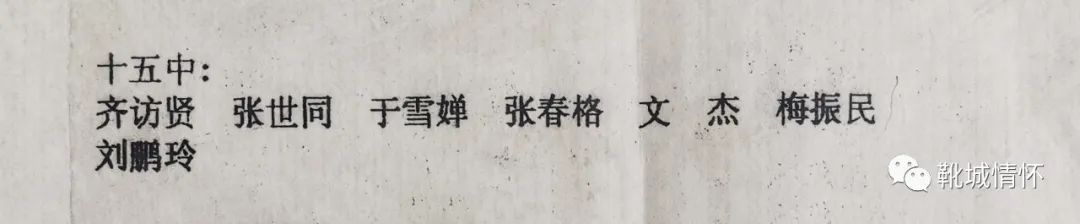 十五中:
齐访贤 张世同 于雪婵 张春格 文 杰 梅振民
刘鹏玲
靴城情怀